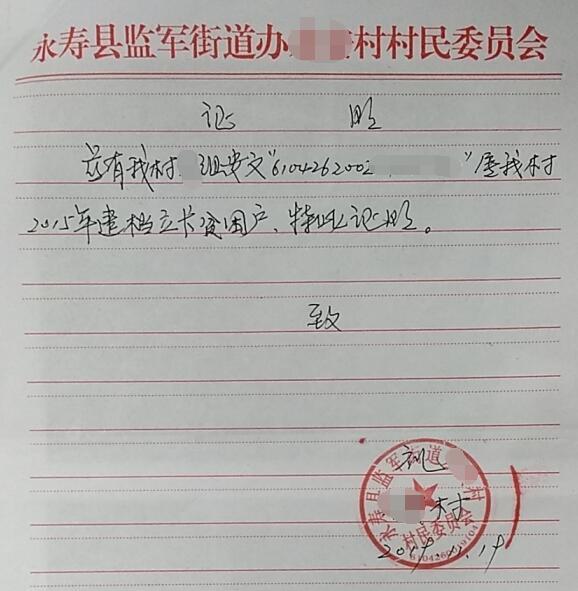 永寿县监军街道办 村村民委员会
证 明
兹有我村 组安文“6104262002 ”属我村
2015年建档立卡贫困户、特此证明。
致
永寿县监军街道 村
村
村民委员会